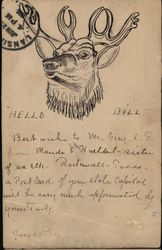 HELLO BILL
Best wishes to Mr. Gray, E. R.
from Maude E Hulbert sister
of an Elk. Rockwall - Texas.
a Post Card of your state Capitol
will be very much appreciated by
yours Truly.